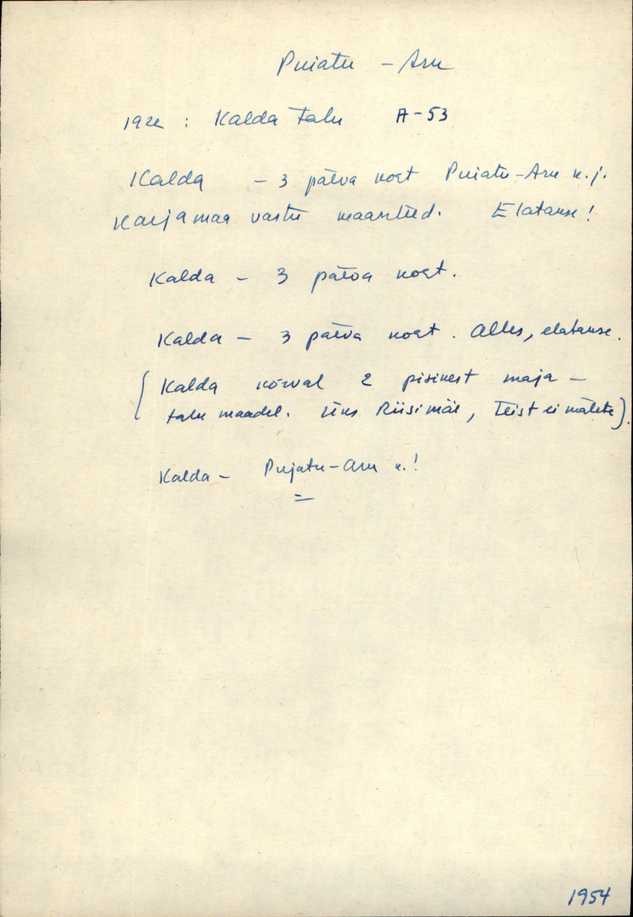 Puiatu - Aru
1922 : Kalda talu A-53
Kalda - 3 päeva koht Puiatu-Aru k.j.
Karjamaa vastu maanteed. Elatakse!
Kalda - 3 päeva koht.
Kalda - 3 päeva koht. Alles, elatakse.
(Kalda kõrval 2 pisikest maja -
talu maadel. Üks Riisimäe, teist ei mäleta).
Kalda - Pujatu-Aru k.!
1954